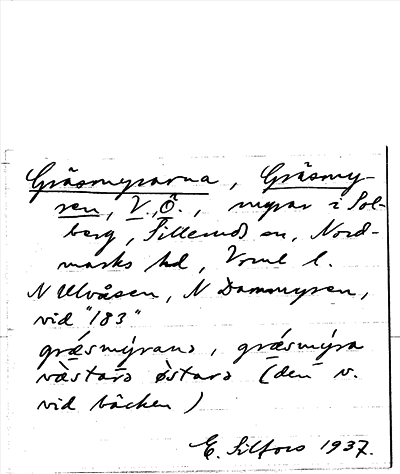 Gräsmyrarna, Gräsmy-
ren, V., Ö., myrar i Sol-
berg, Sillerud sn, Nord-
marks hd, Vrml l.
N Ulvåsen, N Dammyren,
vid "183"
græsmýranə, græsmýra
væstarə østarə (den v.
vid bäcken)
E. Silfors 1937.